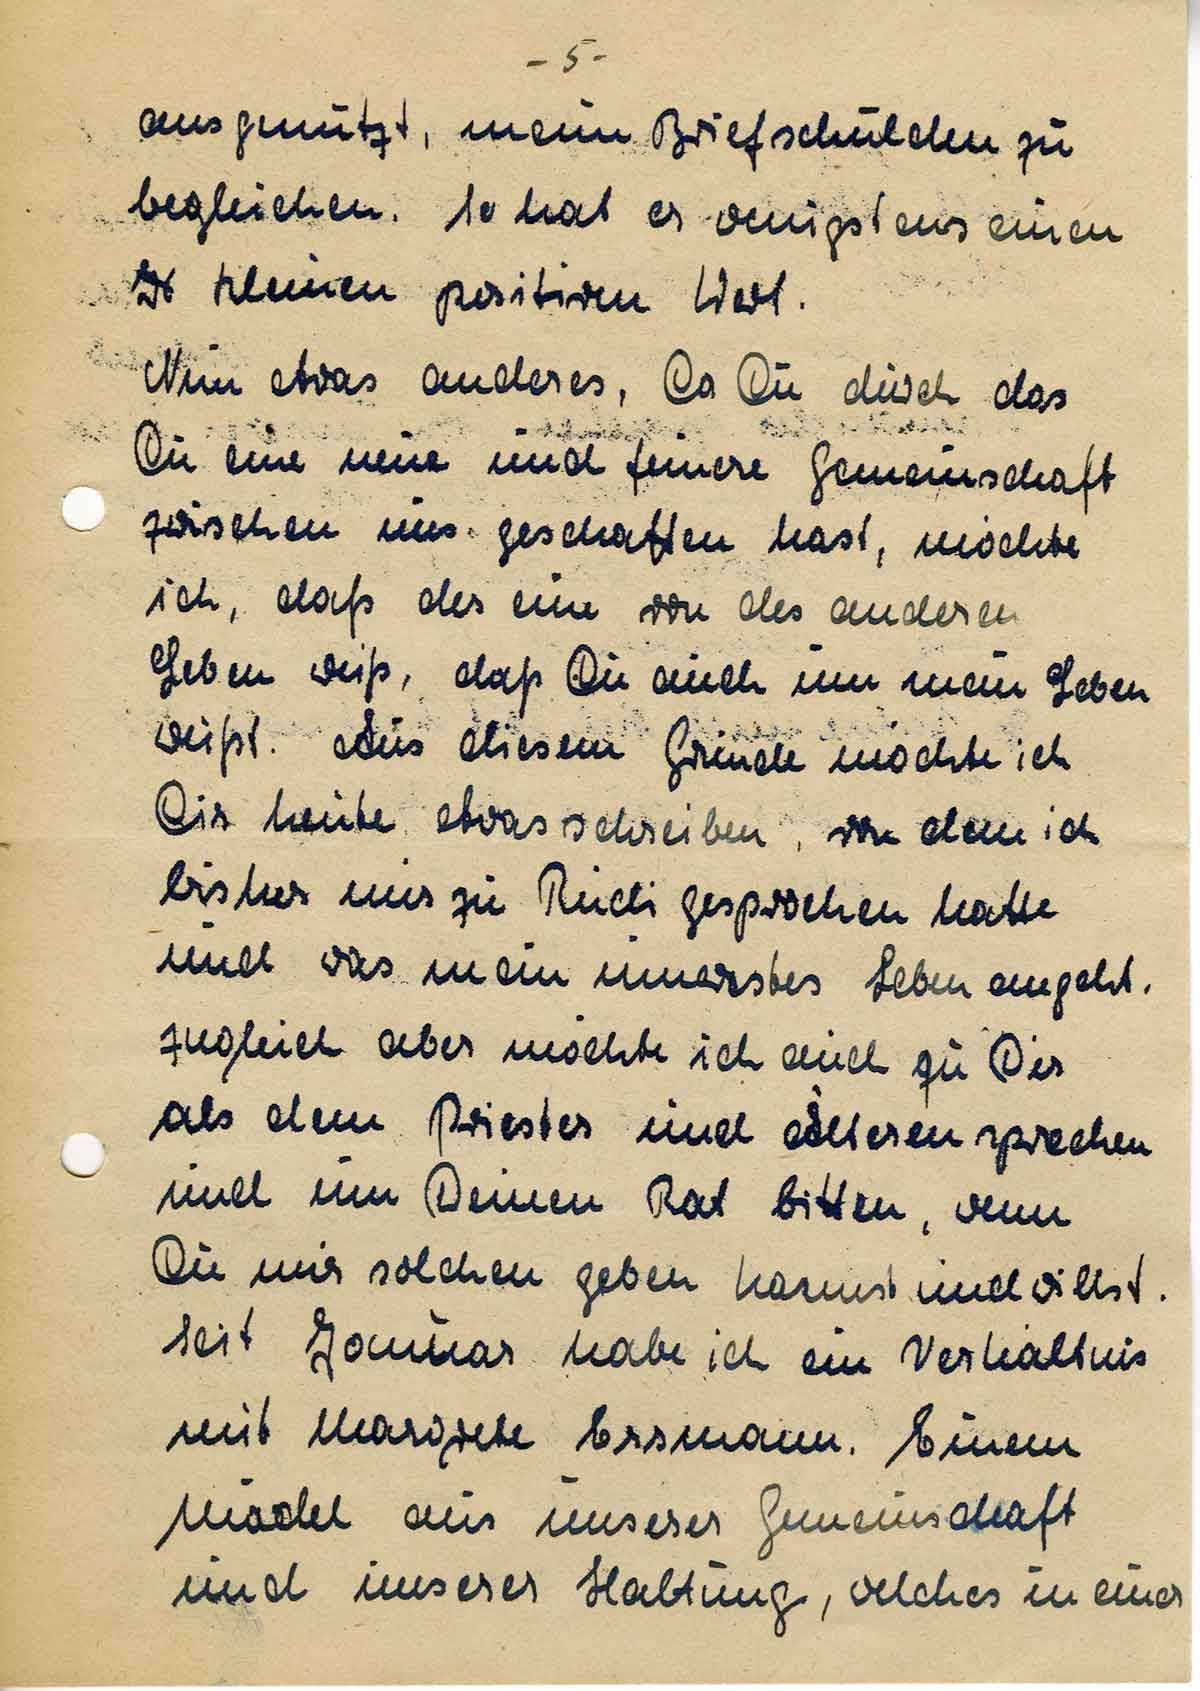 - 5 -
ausgenützt, mein Briefschulden zu
begleichen. So hat er wenigstens einen
kleinen positiven Wert.
Nun etwas anderes, Da Du durch das
Du eine neue und feinere Gemeinschaft
zwischen uns geschaffen hast, möchte
ich, daß der eine von des anderen
Leben weiß, daß Du auch um mein Leben
weißt. Aus diesem Grunde möchte ich
Dir heute etwas schreiben, von dem ich
bisher nur zu Rudi gesprochen hatte
und was mein innerstes Leben angeht.
Zugleich aber möchte ich auch zu Dir
als dem Priester und Älteren sprechen
und um Deinen Rat bitten, wenn
Du mir solchen geben kannst und willst.
Seit Januar habe ich ein Verhältnis
mit Margrete Ersmann. Einem
Mädel aus unserer Gemeinschaft
und unserer Haltung, welches in einer